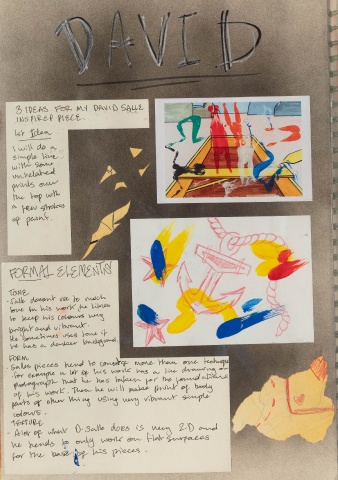 DAVID
3 IDEAS FOR MY DAVID SALLE
INSPIRED PIECE.
1st Idea
I will do a
simple line
with some
unrelated
prints over
the top with
a few strokes
of paint.
FORMAL ELEMENTS
TONE
Salle doesnt use to much
tone in his work, he likes
to keep his colours very
bright and vibrant.
He sometimes uses tone if
he has a darker background.
FORM
Salles pieces tend to consist of more than one technique
for example a lot of his work has a line drawing or
photograph that he has taken for the foundations
of his work. Then he will make print of body
parts of other thing using very vibrant simple
colours.
TEXTURE
A lot of what D-Salle does is very 2-D and
he tends to only work on flat surfaces
for the base of his pieces.